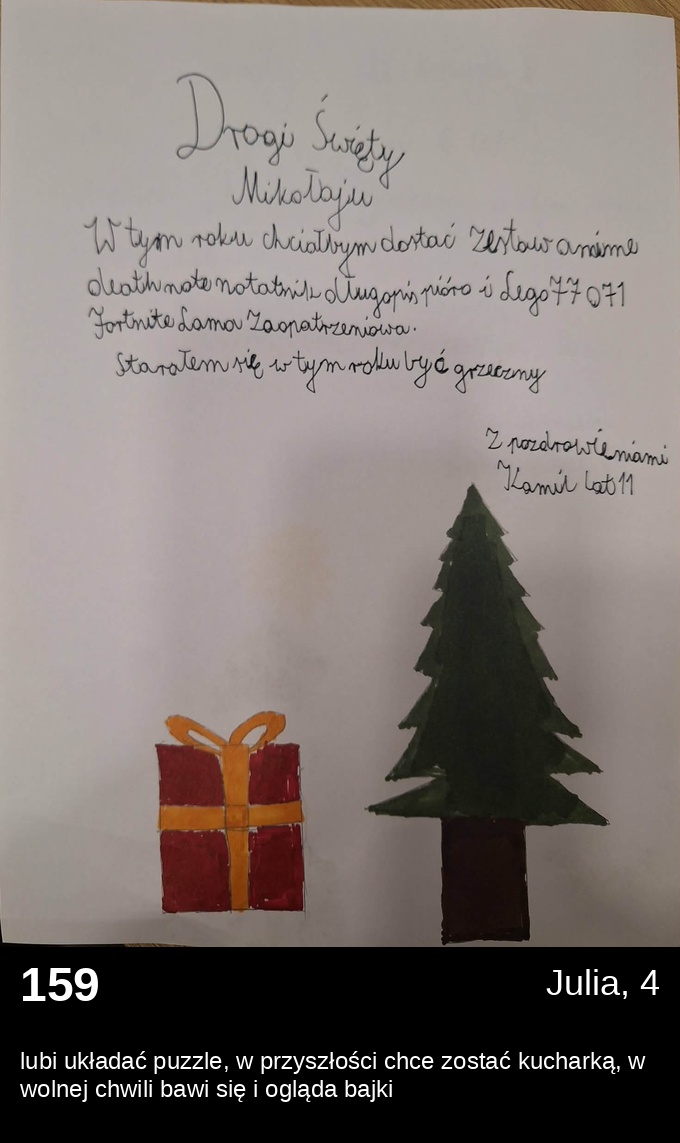 Drogi Święty
Mikołaju
W tym roku chciałbym dostać Zestaw anime
death note notatnik długopis pióro i Lego 77071
Fortnite Lama Zaopatrzeniowa.
Starałem się w tym roku być grzeczny
Z pozdrowieniami
Kamil lat 11
159
Julia, 4
lubi układać puzzle, w przyszłości chce zostać kucharką, w
wolnej chwili bawi się i ogląda bajki